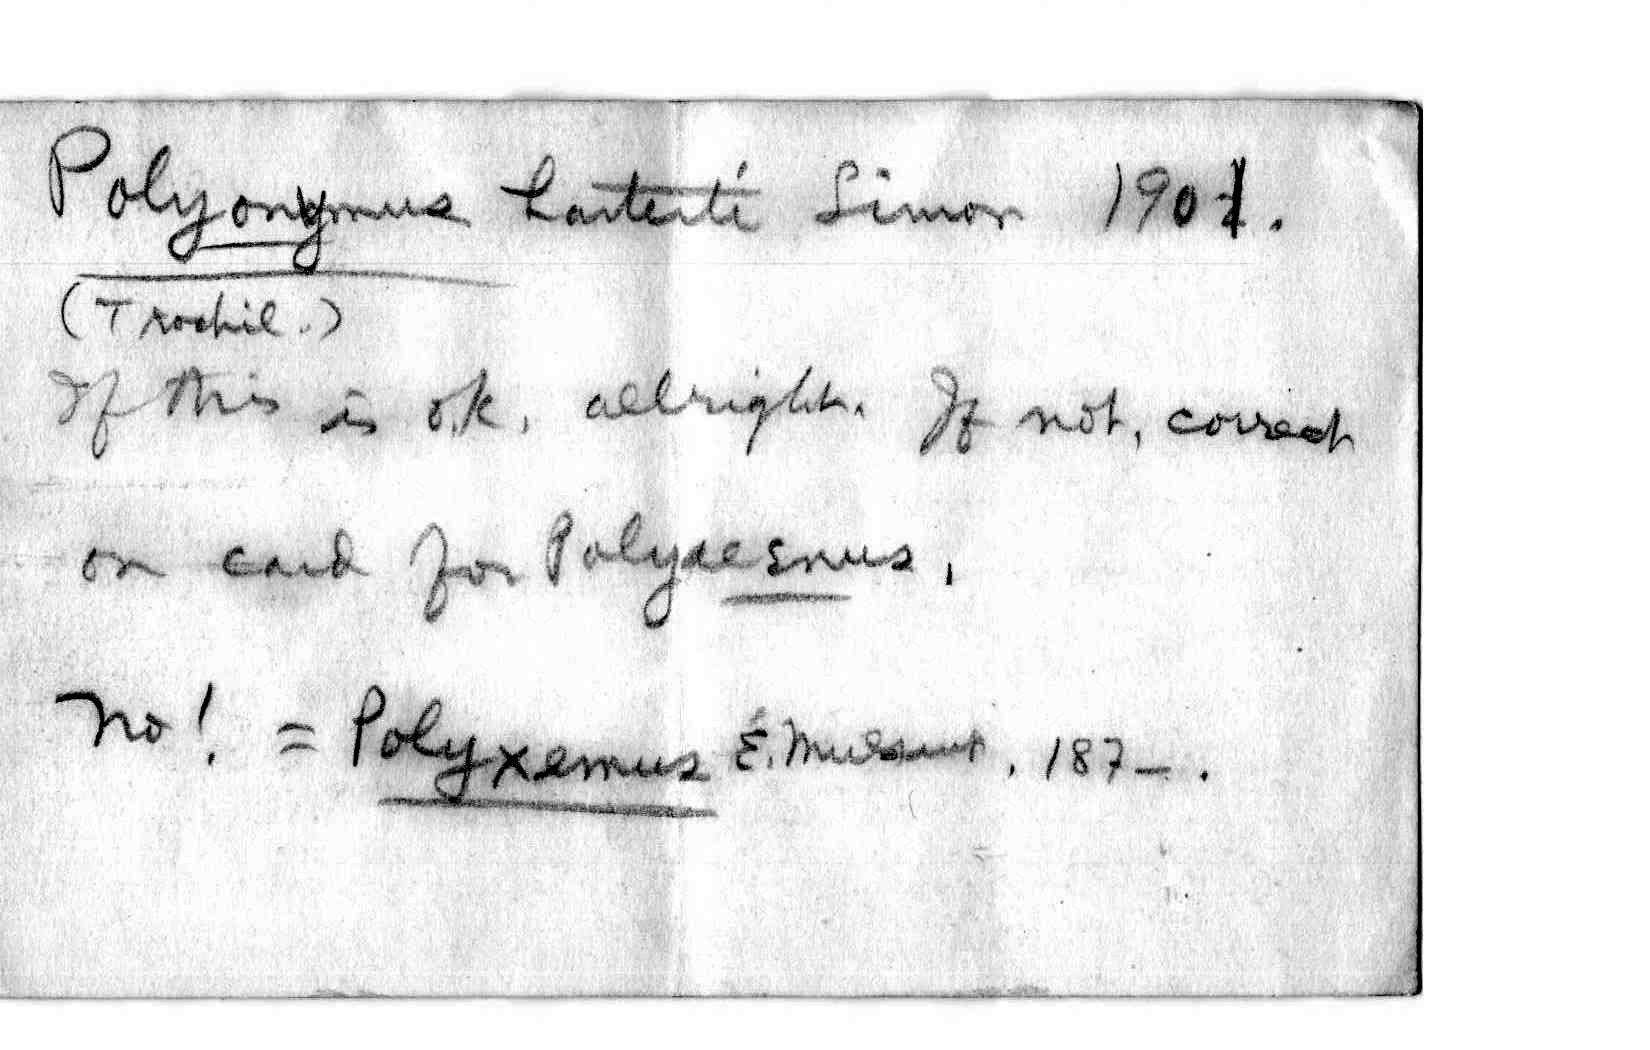 Polyonymus harterti Simon 1901.
(Trochil.)
If this is ok, allright. If not, correct
on card for Polyxemus.
No! = Polyxemus E. Mulsant, 187-.